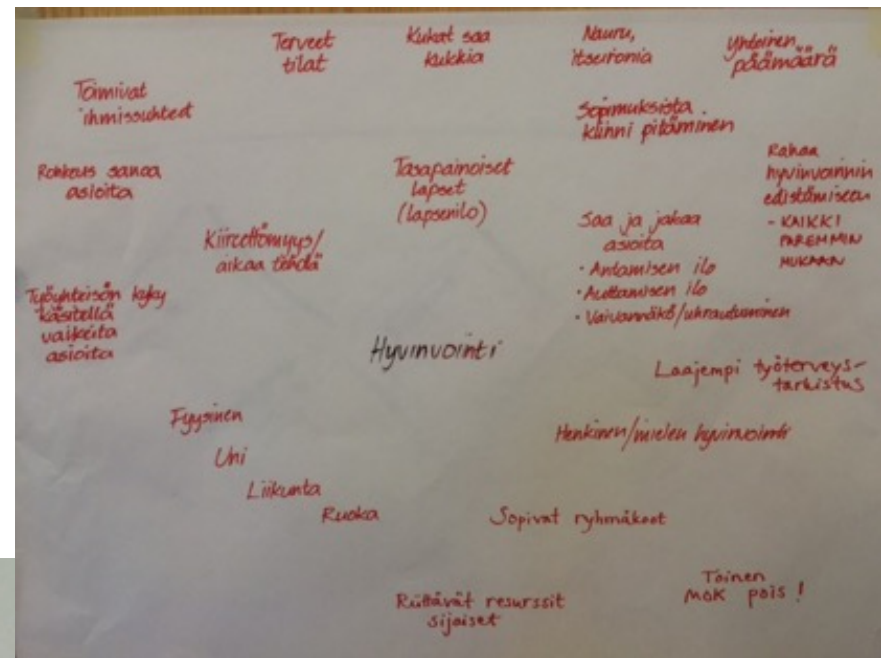 Terveet
tilat
Kukat saa
kukkia
Nauru,
itseironia
Yhteinen
päämäärä
Toimivat
ihmissuhteet
Sopimuksista
kiinni pitäminen
Rohkeus sanoa
asioita
Tasapainoiset
lapset
(lapsenilo)
Rahaa
hyvinvoinnin
edistämiseen
- KAIKKI
PAREMMIN
MUKAAN
Kiireettömyys/
aikaa tehdä
Saa ja jakaa
asioita
• Antamisen ilo
• Auttamisen ilo
• Vaivannäkö/uhrautuminen
Työyhteisön kyky
käsitellä
vaikeita
asioita
Hyvinvointi
Laajempi työterveys-
tarkistus
Fyysinen
Uni
Liikunta
Ruoka
Henkinen/mielen hyvinvointi
Sopivat ryhmäkoot
Riittävät resurssit
sijaiset
Toinen
MOK pois!